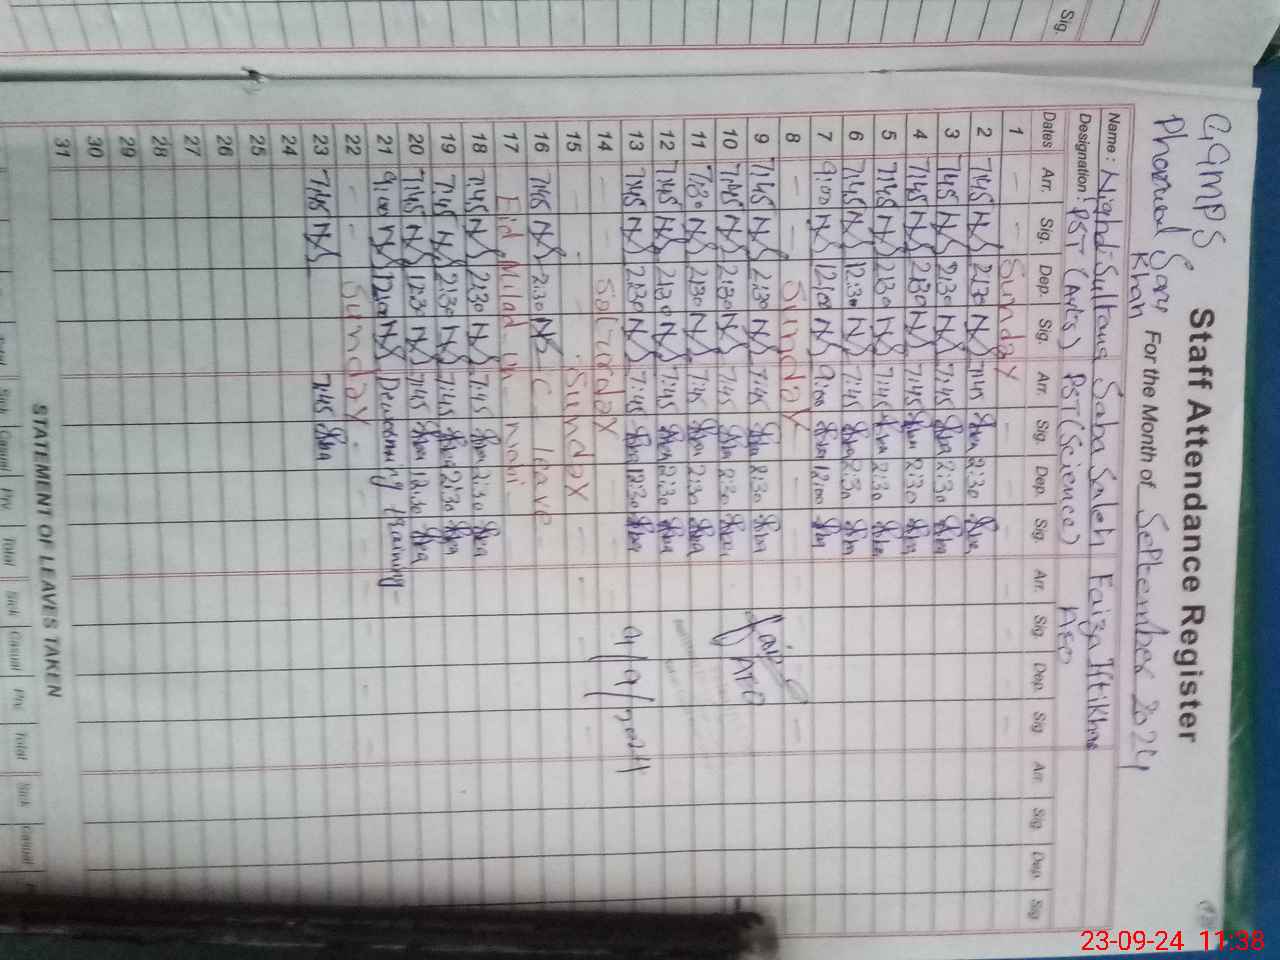 GGMPS
Staff Attendance Register
For the Month of September 2024
Khan
Name : Saba Saleh Faiza Iftikhar
Designation : PST (Arts) PST (Science) AEO
Dates Arr. Sig. Dep. Sig. Arr. Sig. Dep. Sig. Arr. Sig Dep. Sig Arr. Sig Dep. Sig
1 - - Sunday - - -
2 7:45 NS 2:30 NS 7:45 2:30
3 7:45 NS 2:30 NS 7:45 2:30
4 7:45 NS 2:30 NS 7:45 2:30
5 7:45 NS 2:30 NS 7:45 2:30
6 7:45 NS 12:30 NS 7:45 2:30
7 9:00 NS 12:00 NS 9:00 12:00
8 - - Sunday - - -
9 7:45 NS 2:30 NS 7:45 2:30
10 7:45 NS 2:30 NS 7:45 2:30 AEO
11 7:30 NS 2:30 NS 7:45 2:30
12 7:45 NS 2:30 NS 7:45 2:30
13 7:45 NS 2:30 NS 7:45 12:30 9/9/2024
14 - Saturday
15 - - Sunday
16 7:45 NS 2:30 NS C leave
17 Eid Milad un nabi
18 7:45 NS 2:30 NS 7:45 2:30
19 7:45 NS 2:30 NS 7:45 2:30
20 7:45 NS 12:30 NS 7:45 12:30
21 9:00 NS 12:00 NS training
22 - - Sunday
23 7:45 NS 7:45
24
25
26
27
28
29
30
31
STATEMENT OF LEAVES TAKEN
Sick Casual Prv Total Sick Casual Prv Total Sick Casual
Sig.
23-09-24 11:38